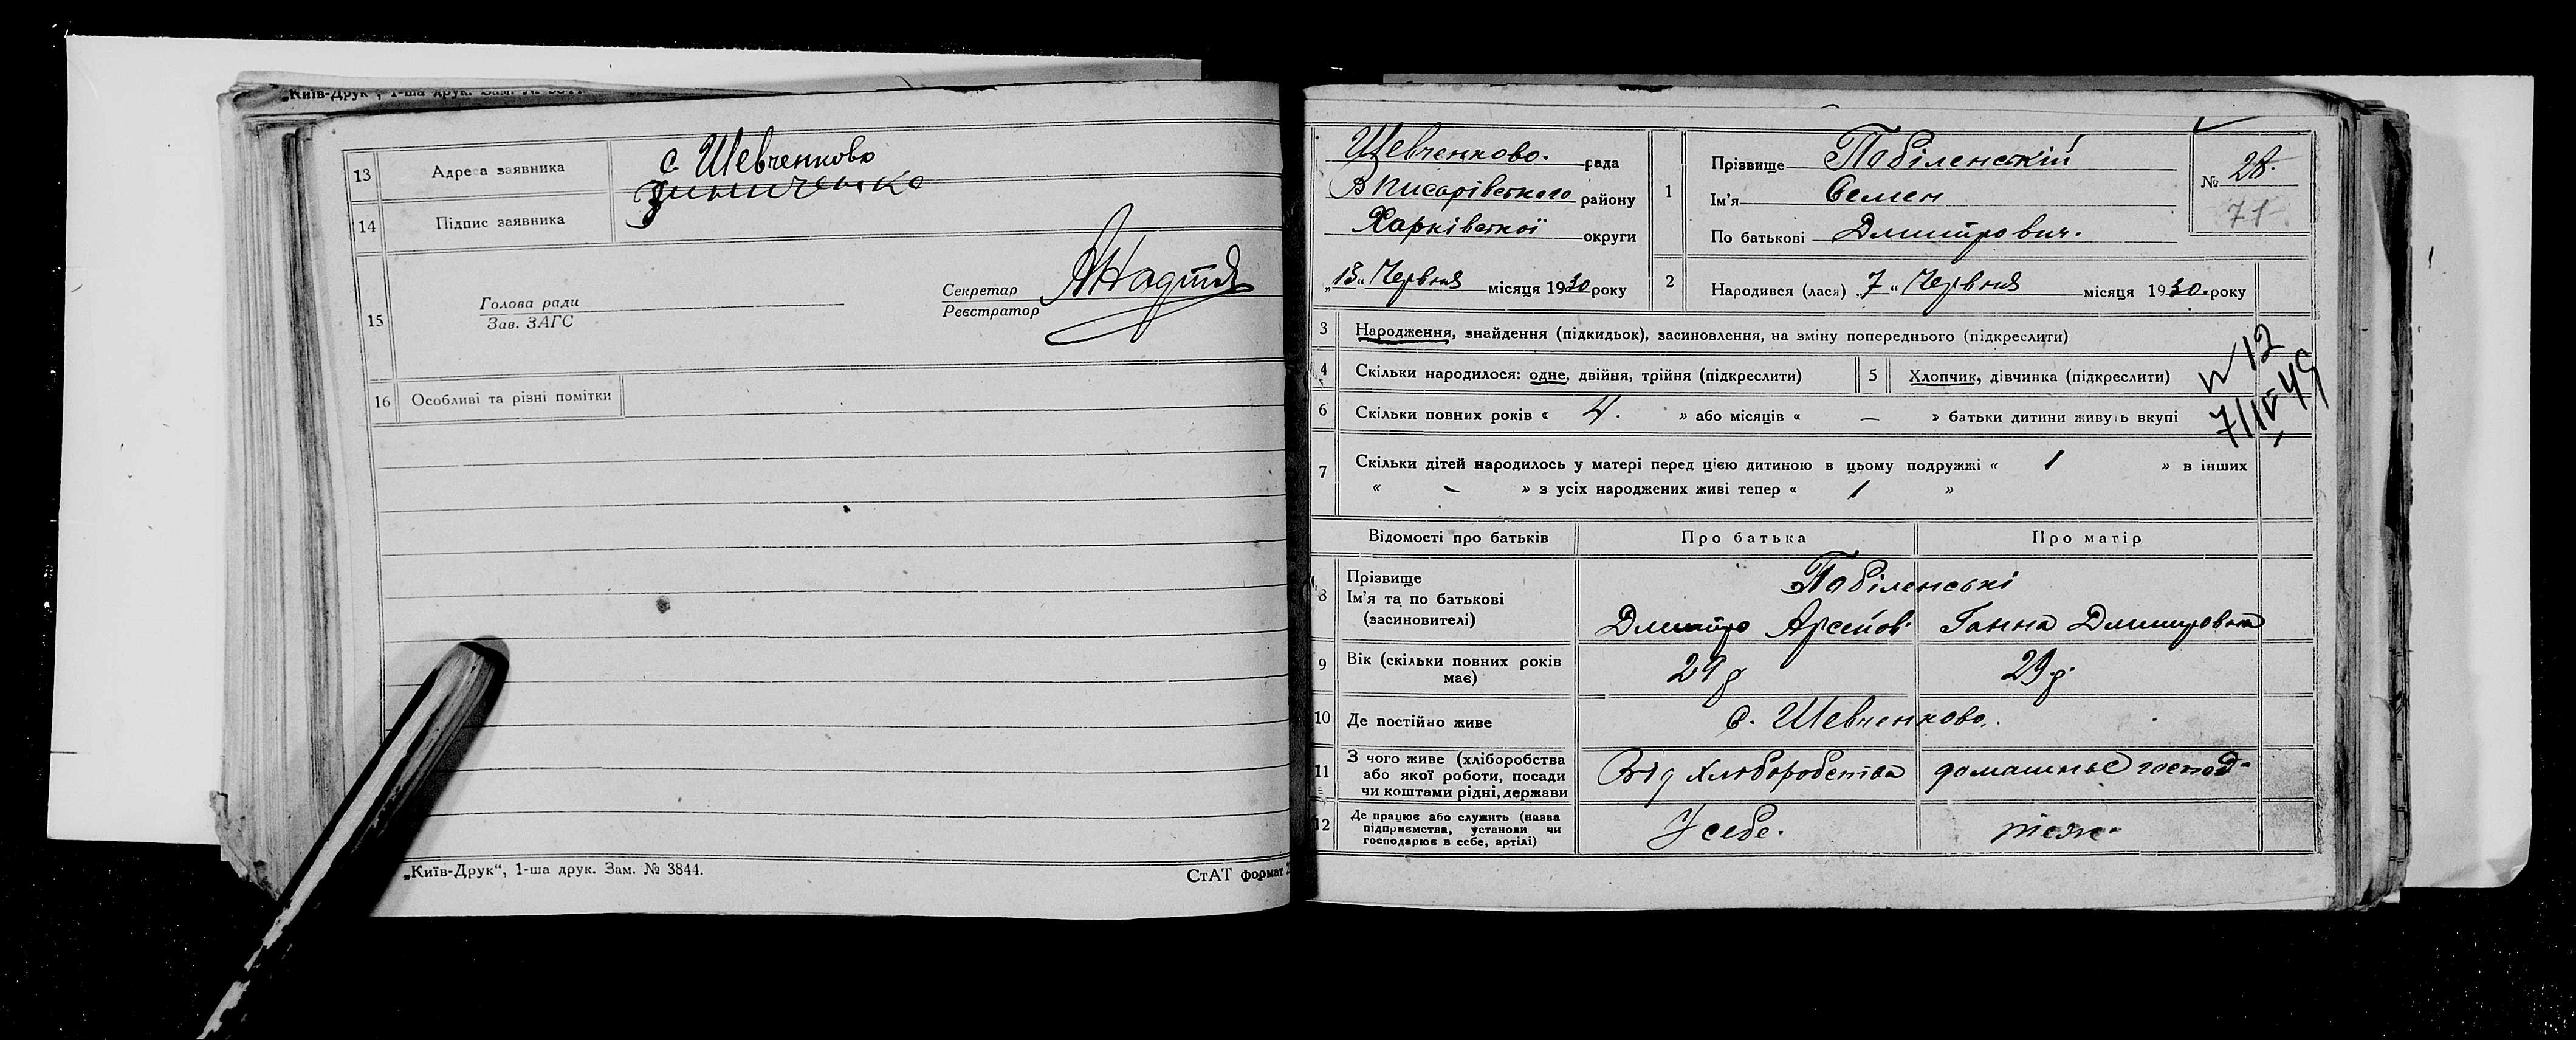 „Київ-Друк“, 1-ша друк. Зам. № 3844.
13 Адреса заявника с Шевченково
14 Підпис заявника
15 Голова ради
Зав. ЗАГС
Секретар
Реєстратор
16 Особливі та різні помітки
„Київ-Друк“, 1-ша друк. Зам. № 3844.
СтАТ формат
Шевченково. рада
В Писарівського району
Харківської округи
„13“ Червня місяця 1930 року
1 Прізвище Побіленскій
Ім'я Семен
По батькові Дмитрович.
№ 28.
71
2 Народився (лася) „7“ Червня місяця 1930. року
3 Народження, знайдення (підкидьок), засиновлення, на зміну попереднього (підкреслити)
4 Скільки народилося: одне, двійня, трійня (підкреслити) 5 Хлопчик, дівчинка (підкреслити)
№ 12
7/IV-49
6 Скільки повних років « 4. » або місяців « — » батьки дитини живуть вкупі
7 Скільки дітей народилось у матері перед цією дитиною в цьому подружжі « 1 » в інших
« - » з усіх народжених живі тепер « 1 »
Відомості про батьків Про батька Про матір
8 Прізвище Побіленські
Ім'я та по батькові
(засиновителі) Дмитро Арсентов. Ганна Дмитровна
9 Вік (скільки повних років має) 29 р 29 р.
10 Де постійно живе с. Шевченково.
11 З чого живе (хліборобства
або якої роботи, посади
чи коштами рідні, держави Від хліборобства домашнє господ-
12 Де працює або служить (назва
підприємства, установи чи
господарює в себе, артілі) У себе. теж-